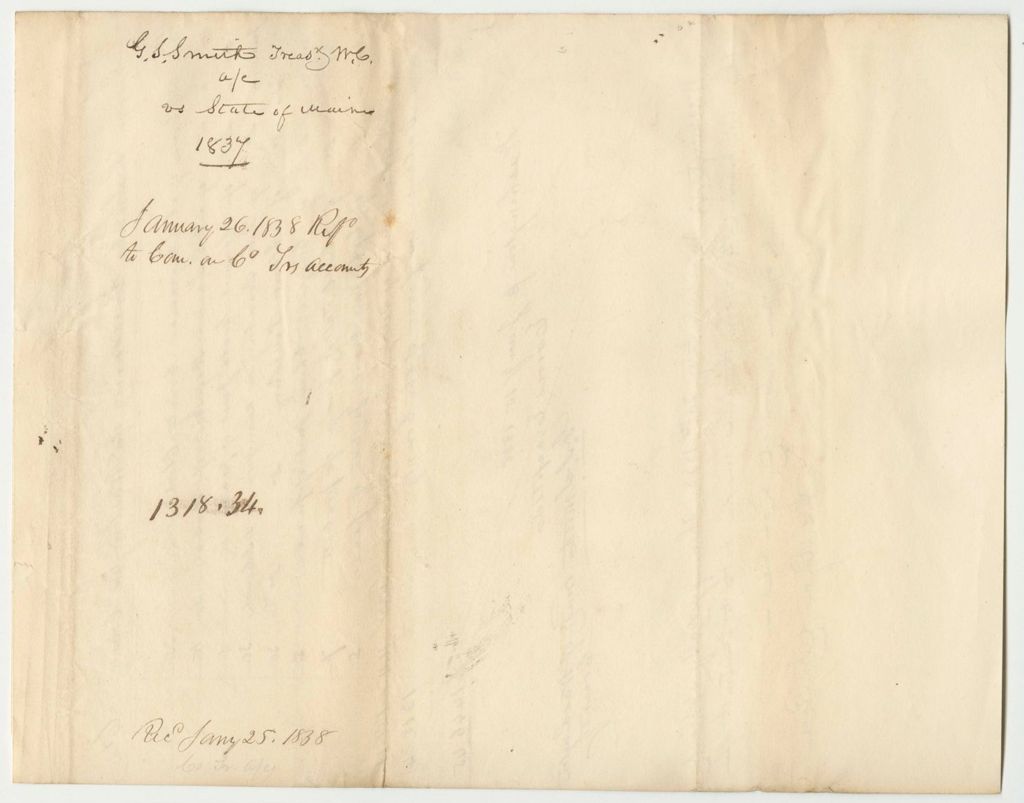 G. S. Smith Treasr W.C.
a/c
vs State of Maine
1837
January 26. 1838 Refd
to Com. on Co Trs accounts
1318.34.
Recd Jany 25. 1838
Co Tr a/c